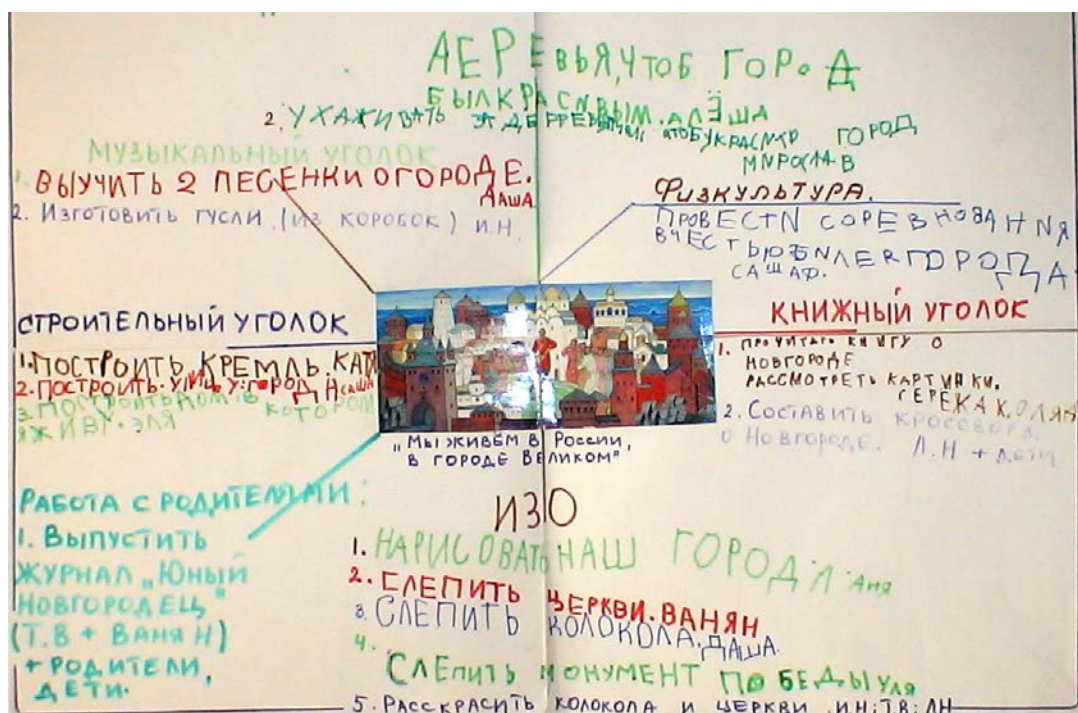 ДЕРЕВЬЯ, ЧТОБ ГОРОД
БЫЛ КРАСИВЫМ. АЛЁША
2. УХАЖИВАТЬ ЗА ГОРОД
МИРОСЛАВ
МУЗЫКАЛЬНЫЙ УГОЛОК
1. ВЫУЧИТЬ 2 ПЕСЕНКИ ОГОРОДЕ.
ДАША.
2. ИЗГОТОВИТЬ ГУСЛИ (ИЗ КОРОБОК) И.Н.
ФИЗКУЛЬТУРА.
ПРОВЕСТN СОРЕВНОВАНNЯ
ВЧЕСТЬЮБNЛЕЯ ГОРОДА.
САША Ф.
СТРОИТЕЛЬНЫЙ УГОЛОК
1. ПОСТРОИТЬ КРЕМЛЬ. КАТЯ
2. ПОСТРОИТЬ УЛИЦУ. ГОРОД Н САША
3. ПОСТРОИТЬ ДОМ В КОТОРОМ
ЯЖИВУ. ЭЛЯ
КНИЖНЫЙ УГОЛОК
1. КНИГУ О
НОВГОРОДЕ
РАССМОТРЕТЬ КАРТИНКИ.
СЕРЕЖА Х. ОЛЯ Н
2. СОСТАВИТЬ КРОССВОРД
О НОВГОРОДЕ. Л.Н + ДЕТИ
„МЫ ЖИВЁМ В РОССИИ,
В ГОРОДЕ ВЕЛИКОМ"
РАБОТА С РОДИТЕЛЯМИ:
1. ВЫПУСТИТЬ
ЖУРНАЛ „ЮНЫЙ
НОВГОРОДЕЦ"
(Т.В + ВАНЯ Н)
+ РОДИТЕЛИ,
ДЕТИ.
ИЗО
1. НАРИСОВАТЬ НАШ ГОРОД Л АНЯ
2. СЛЕПИТЬ ЦЕРКВИ. ВАНЯН
3. СЛЕПИТЬ КОЛОКОЛА. ДАША.
4.
СЛЕПИТЬ МОНУМЕНТ ПОБЕДЫ УЛЯ
5. РАССКРАСИТЬ КОЛОКОЛА И ЦЕРКВИ. И.Н; Т.В; Л.Н